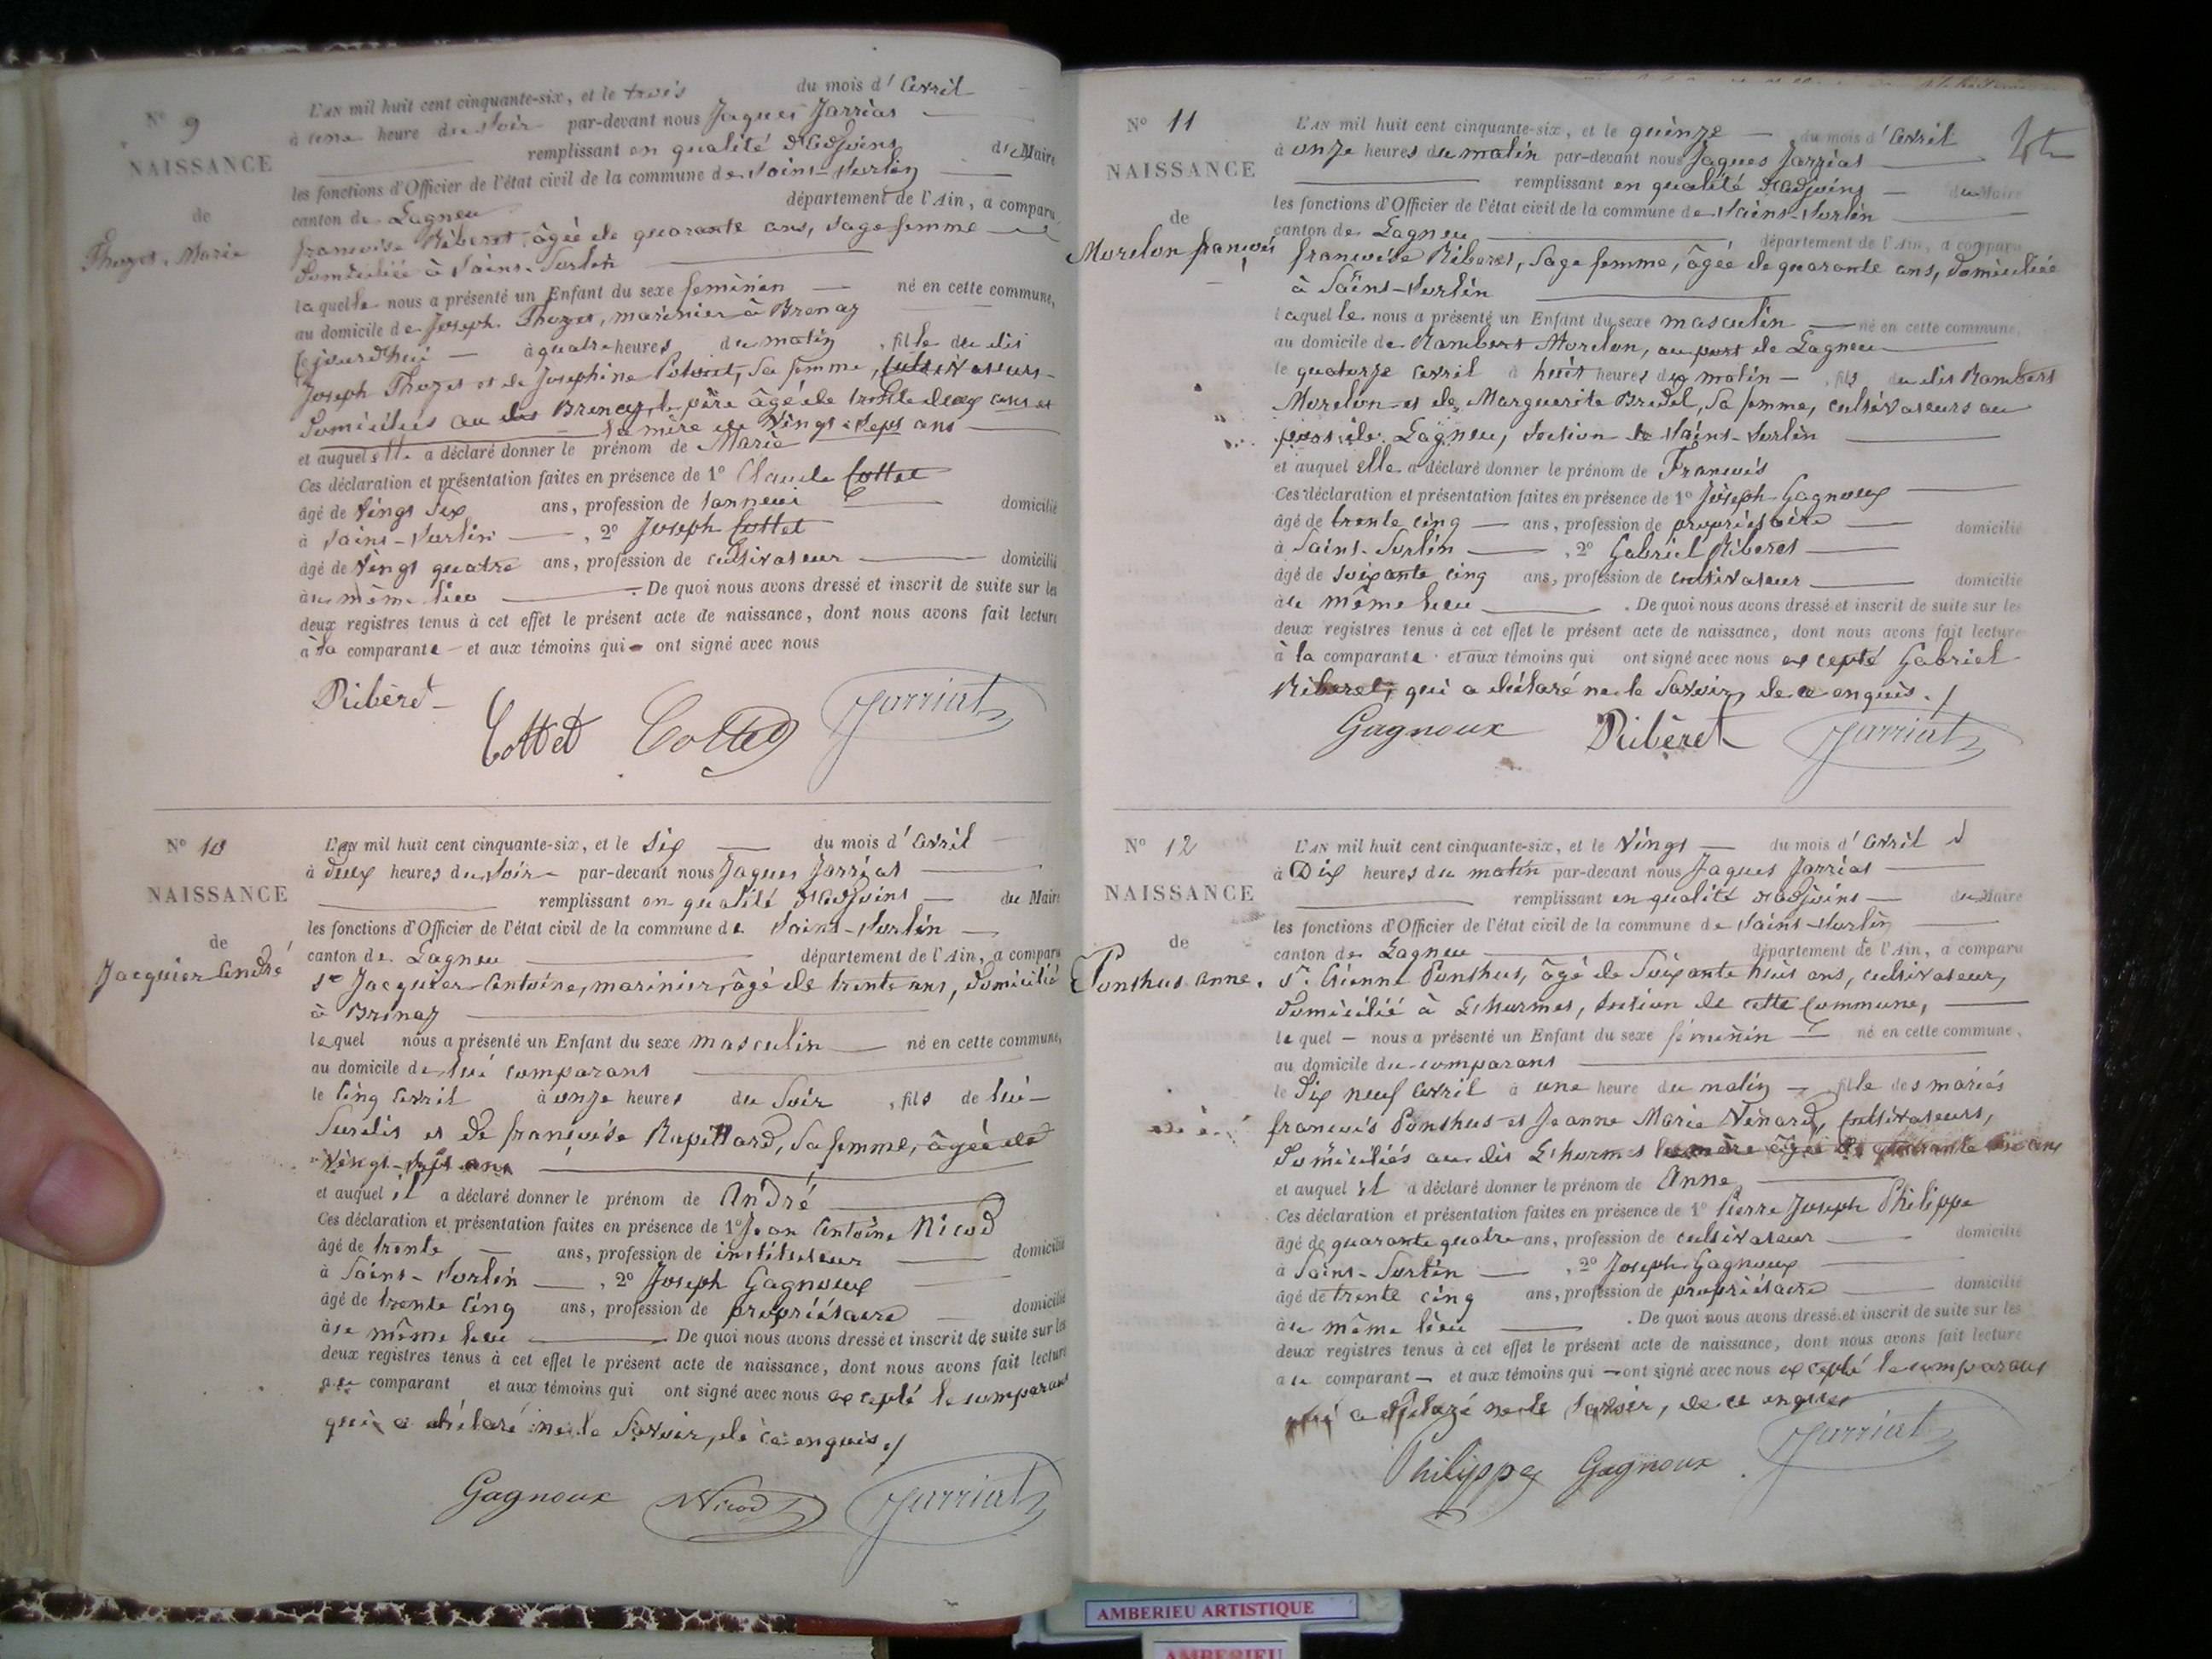 N° 9
NAISSANCE
de
Thozet Marie
L'AN mil huit cent cinquante-six, et le trois du mois d'Avril
à une heure du Soir par-devant nous Jaques Jarriat
remplissant en qualité d'Adjoint du Maire
les fonctions d'Officier de l'état civil de la commune de Saint-Sorlin
canton de Lagneu département de l'Ain, a comparu
françoise Riberet, âgée de quarante ans, Sage femme
Domiciliée à Saint-Sorlin
laquelle nous a présenté un Enfant du sexe feminin né en cette commune,
au domicile de Joseph Thozet, marinier à Brenaz
Cejourd'hui à quatre heures du matin, fille du dit
Joseph Thozet et de Josephine, Sa femme, Cultivateurs
Domiciliés au dit Brenaz, le père âgé de trente deux ans et
la mère de Vingt-Sept ans
et auquel elle a déclaré donner le prénom de Marie
Ces déclaration et présentation faites en présence de 1° Claude Cottet
âgé de Vingt Six ans, profession de domicilié
à Saint-Sorlin, 2° Joseph Cottet
âgé de Vingt quatre ans, profession de cultivateur domicilié
au même lieu. De quoi nous avons dressé et inscrit de suite sur les
deux registres tenus à cet effet le présent acte de naissance, dont nous avons fait lecture
à la comparante et aux témoins qui ont signé avec nous
Ribèret Cottet Cottet Jarriat
N° 10
NAISSANCE
de
Jacquier André
L'AN mil huit cent cinquante-six, et le Six du mois d'Avril
à deux heures du Soir par-devant nous Jaques Jarriat
remplissant en qualité d'Adjoint du Maire
les fonctions d'Officier de l'état civil de la commune de Saint-Sorlin
canton de Lagneu département de l'Ain, a comparu
Sr Jacquier Antoine, marinier, âgé de trente ans, domicilié
à Brenaz
lequel nous a présenté un Enfant du sexe masculin né en cette commune,
au domicile de lui comparant
le Cinq Avril à onze heures du Soir, fils de lui
Susdit et de françoise Rapittard, Sa femme, âgée de
Vingt-Sept ans
et auquel il a déclaré donner le prénom de André
Ces déclaration et présentation faites en présence de 1° Jean Antoine Nicod
âgé de trente ans, profession de instituteur domicilié
à Saint-Sorlin, 2° Joseph Gagnoux
âgé de trente Cinq ans, profession de propriétaire domicilié
au même lieu. De quoi nous avons dressé et inscrit de suite sur les
deux registres tenus à cet effet le présent acte de naissance, dont nous avons fait lecture
au comparant et aux témoins qui ont signé avec nous excepté le comparant
qui a déclaré ne le Savoir, de ce enquis./
Gagnoux Nicod Jarriat
N° 11
NAISSANCE
de
Morelon françois
L'AN mil huit cent cinquante-six, et le quinze du mois d'Avril
à onze heures du matin par-devant nous Jaques Jarriat
remplissant en qualité d'Adjoint du Maire
les fonctions d'Officier de l'état civil de la commune de Saint-Sorlin
canton de Lagneu département de l'Ain, a comparu
françoise Riberet, Sage femme, âgée de quarante ans, domiciliée
à Saint-Sorlin
laquelle nous a présenté un Enfant du sexe masculin né en cette commune,
au domicile de Rambert Morelon, au port de Lagneu
le quatorze Avril à huit heures du matin, fils du dit Rambert
Morelon et de Marguerite Bredel, Sa femme, cultivateurs au
port de Lagneu, Section de Saint-Sorlin
et auquel elle a déclaré donner le prénom de François
Ces déclaration et présentation faites en présence de 1° Joseph Gagnoux
âgé de trente cinq ans, profession de propriétaire domicilié
à Saint-Sorlin, 2° Gabriel Riberet
âgé de Soixante cinq ans, profession de cultivateur domicilié
au même lieu. De quoi nous avons dressé et inscrit de suite sur les
deux registres tenus à cet effet le présent acte de naissance, dont nous avons fait lecture
à la comparante et aux témoins qui ont signé avec nous excepté Gabriel
Riberet, qui a déclaré ne le Savoir, de ce enquis./
Gagnoux Ribèret Jarriat
N° 12
NAISSANCE
de
Ponthus Anne
L'AN mil huit cent cinquante-six, et le Vingt du mois d'Avril
à Dix heures du matin par-devant nous Jaques Jarriat
remplissant en qualité d'Adjoint du Maire
les fonctions d'Officier de l'état civil de la commune de Saint-Sorlin
canton de Lagneu département de l'Ain, a comparu
Sr Etienne Ponthus, âgé de Soixante huit ans, cultivateur,
Domicilié à L'hormet, Section de cette Commune,
lequel nous a présenté un Enfant du sexe féminin né en cette commune,
au domicile du comparant
le Dix neuf Avril à une heure du matin, fille des mariés
françois Ponthus et Jeanne Marie Vénard, Cultivateurs,
Domiciliés au dit L'hormet la mère âgée de quarante ans
et auquel il a déclaré donner le prénom de Anne
Ces déclaration et présentation faites en présence de 1° Pierre Joseph Philippe
âgé de quarante quatre ans, profession de cultivateur domicilié
à Saint-Sorlin, 2° Joseph Gagnoux
âgé de trente cinq ans, profession de propriétaire domicilié
au même lieu. De quoi nous avons dressé et inscrit de suite sur les
deux registres tenus à cet effet le présent acte de naissance, dont nous avons fait lecture
au comparant et aux témoins qui ont signé avec nous excepté le comparant
qui a déclaré ne le Savoir, de ce enquis
Philippe Gagnoux Jarriat
AMBERIEU ARTISTIQUE
AMBERIEU